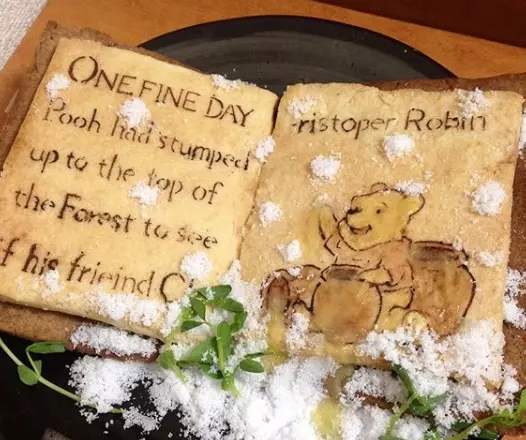 ONE FINE DAY
Pooh had stumped
up to the top of
the Forest to see
if his frieind C
ristoper Robin